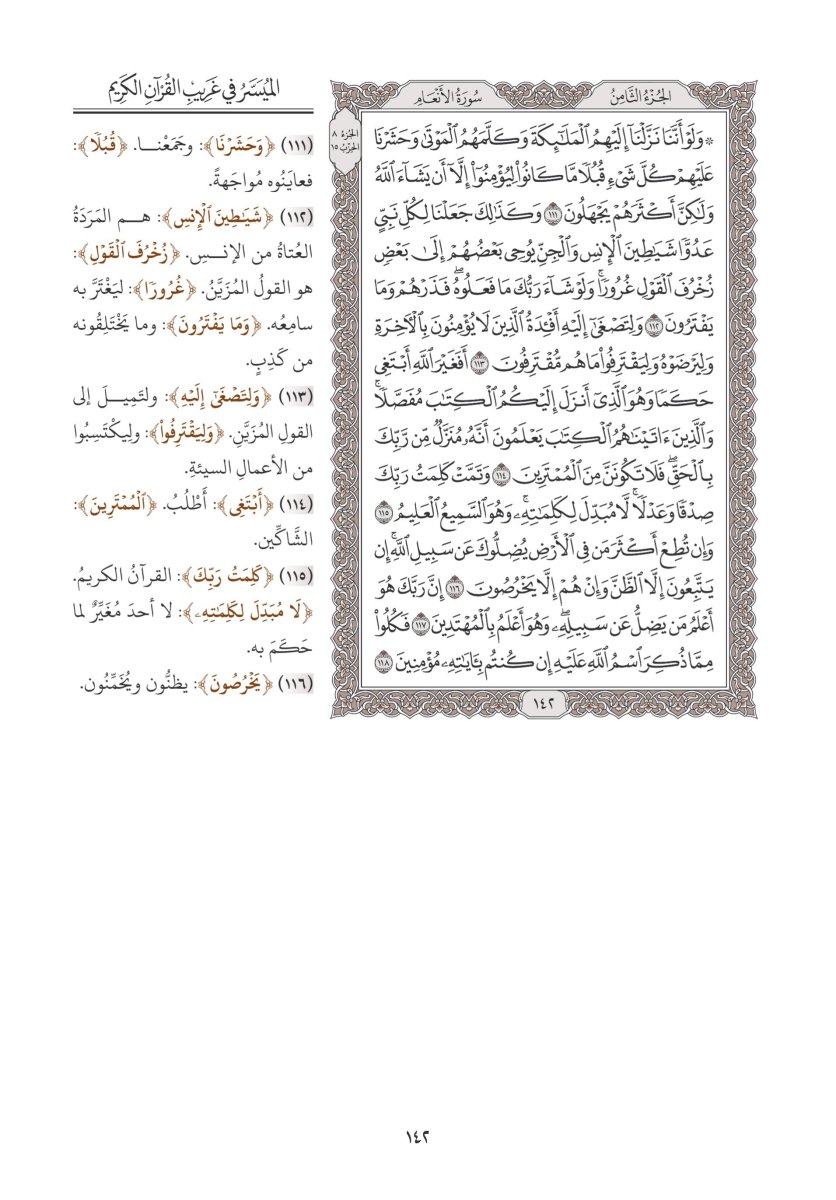 الجُزْءُ الثَّامِنُ
سُورَةُ الأَنْعَام
۞ وَلَوْ أَنَّنَا نَزَّلْنَآ إِلَيْهِمُ ٱلْمَلَٰٓئِكَةَ وَكَلَّمَهُمُ ٱلْمَوْتَىٰ وَحَشَرْنَا
عَلَيْهِمْ كُلَّ شَىْءٍ قُبُلًا مَّا كَانُوا۟ لِيُؤْمِنُوٓا۟ إِلَّآ أَن يَشَآءَ ٱللَّهُ
وَلَٰكِنَّ أَكْثَرَهُمْ يَجْهَلُونَ ١١١ وَكَذَٰلِكَ جَعَلْنَا لِكُلِّ نَبِىٍّ
عَدُوًّا شَيَٰطِينَ ٱلْإِنسِ وَٱلْجِنِّ يُوحِى بَعْضُهُمْ إِلَىٰ بَعْضٍ
زُخْرُفَ ٱلْقَوْلِ غُرُورًا ۚ وَلَوْ شَآءَ رَبُّكَ مَا فَعَلُوهُ ۖ فَذَرْهُمْ وَمَا
يَفْتَرُونَ ١١٢ وَلِتَصْغَىٰٓ إِلَيْهِ أَفْـِٔدَةُ ٱلَّذِينَ لَا يُؤْمِنُونَ بِٱلْءَاخِرَةِ
وَلِيَرْضَوْهُ وَلِيَقْتَرِفُوا۟ مَا هُم مُّقْتَرِفُونَ ١١٣ أَفَغَيْرَ ٱللَّهِ أَبْتَغِى
حَكَمًا وَهُوَ ٱلَّذِىٓ أَنزَلَ إِلَيْكُمُ ٱلْكِتَٰبَ مُفَصَّلًا ۚ
وَٱلَّذِينَ ءَاتَيْنَٰهُمُ ٱلْكِتَٰبَ يَعْلَمُونَ أَنَّهُۥ مُنَزَّلٌ مِّن رَّبِّكَ
بِٱلْحَقِّ ۖ فَلَا تَكُونَنَّ مِنَ ٱلْمُمْتَرِينَ ١١٤ وَتَمَّتْ كَلِمَتُ رَبِّكَ
صِدْقًا وَعَدْلًا ۚ لَّا مُبَدِّلَ لِكَلِمَٰتِهِۦ ۚ وَهُوَ ٱلسَّمِيعُ ٱلْعَلِيمُ ١١٥
وَإِن تُطِعْ أَكْثَرَ مَن فِى ٱلْأَرْضِ يُضِلُّوكَ عَن سَبِيلِ ٱللَّهِ ۚ إِن
يَتَّبِعُونَ إِلَّا ٱلظَّنَّ وَإِنْ هُمْ إِلَّا يَخْرُصُونَ ١١٦ إِنَّ رَبَّكَ هُوَ
أَعْلَمُ مَن يَضِلُّ عَن سَبِيلِهِۦ ۖ وَهُوَ أَعْلَمُ بِٱلْمُهْتَدِينَ ١١٧ فَكُلُوا۟
مِمَّا ذُكِرَ ٱسْمُ ٱللَّهِ عَلَيْهِ إِن كُنتُم بِـَٔايَٰتِهِۦ مُؤْمِنِينَ ١١٨
١٤٢
الجُزءُ ٨
الحِزْبُ ١٥
المُيَسَّرُ فِي غَرِيبِ القُرْآنِ الكَرِيمِ
(١١١) ﴿وَحَشَرْنَا﴾: وجَمَعْنا. ﴿قُبُلًا﴾:
فعايَنُوه مُواجَهةً.
(١١٢) ﴿شَيَٰطِينَ ٱلْإِنسِ﴾: هم المَرَدَةُ
العُتاةُ من الإنسِ. ﴿زُخْرُفَ ٱلْقَوْلِ﴾:
هو القولُ المُزَيَّنُ. ﴿غُرُورًا﴾: ليَغْتَرَّ به
سامِعُه. ﴿وَمَا يَفْتَرُونَ﴾: وما يَخْتَلِقُونه
من كَذِبٍ.
(١١٣) ﴿وَلِتَصْغَىٰٓ إِلَيْهِ﴾: ولتَمِيلَ إلى
القولِ المُزَيَّنِ. ﴿وَلِيَقْتَرِفُوا۟﴾: ولِيكتَسِبُوا
من الأعمالِ السيئةِ.
(١١٤) ﴿أَبْتَغِى﴾: أَطْلُبُ. ﴿ٱلْمُمْتَرِينَ﴾:
الشَّاكِّين.
(١١٥) ﴿كَلِمَتُ رَبِّكَ﴾: القرآنُ الكريمُ.
﴿لَّا مُبَدِّلَ لِكَلِمَٰتِهِۦ﴾: لا أحدَ مُغَيِّرٌ لما
حَكَمَ به.
(١١٦) ﴿يَخْرُصُونَ﴾: يظنُّون ويُخَمِّنُون.
١٤٢